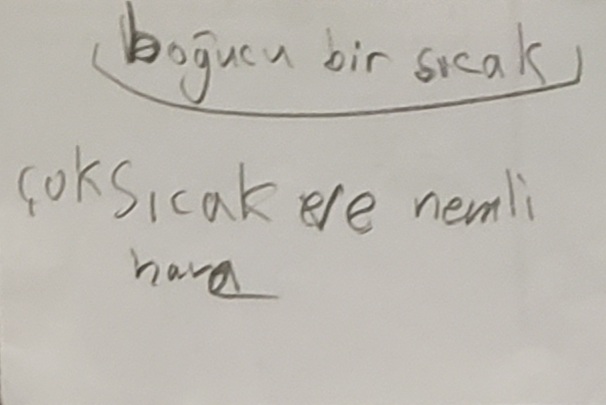 boğucu bir sıcak
çok sıcak ve nemli
hava